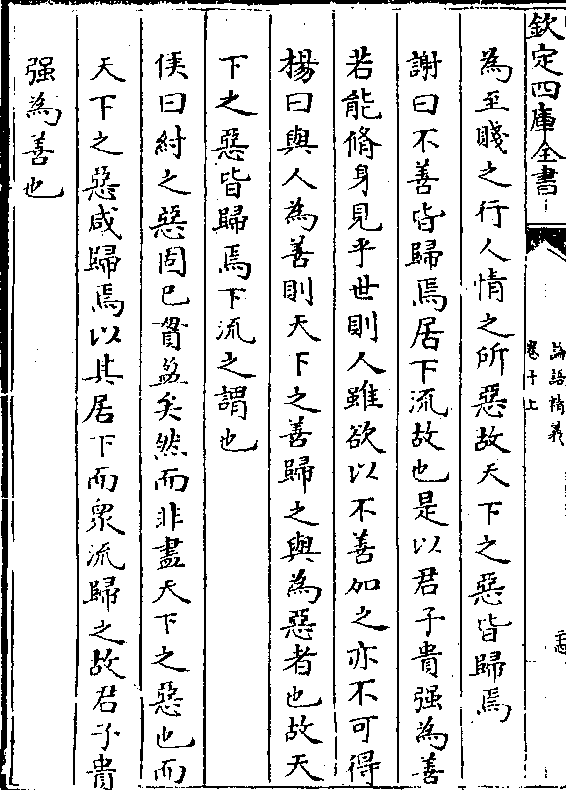 欽定四庫全書
論語精義
卷十上
為至賤之行人情之所惡故天下之惡皆歸焉
謝曰不善皆歸焉居下流故也是以君子貴强為善
若能脩身見乎世則人雖欲以不善加之亦不可得
楊曰與人為善則天下之善歸之與為惡者也故天
下之惡皆歸焉下流之謂也
侯曰紂之惡固已貫盈矣然而非盡天下之惡也而
天下之惡咸歸焉以其居下而衆流歸之故君子貴
强為善也